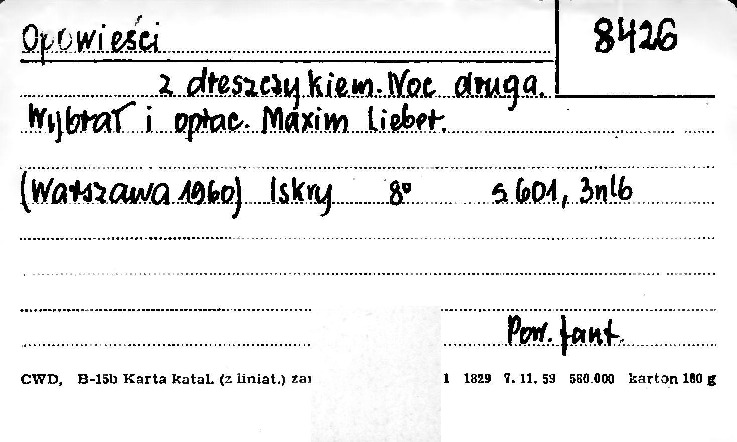 Opowieści 8426
z dreszczykiem. Noc druga.
Wybrał i oprac. Maxim Lieber.
(Warszawa 1960) Iskry 8° s 601, 3nlb
Pow. fant.
CWD, B-15b Karta katal. (z liniat.) zam 1 1829 7. 11. 59 560.000 karton 180 g